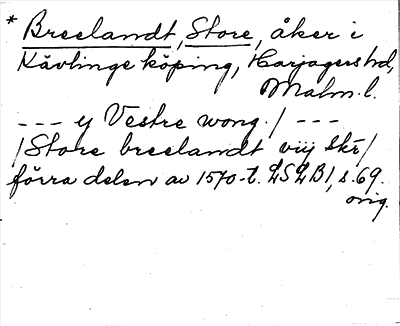 * Breelandt, Store, åker i
Kävlinge köping, Harjagers hd,
Malm. l.
--- y Vestre wong. / ---
/ Store breelandt viij skr /
förra delen av 1570-t. LSLB1, s. 69.
orig.